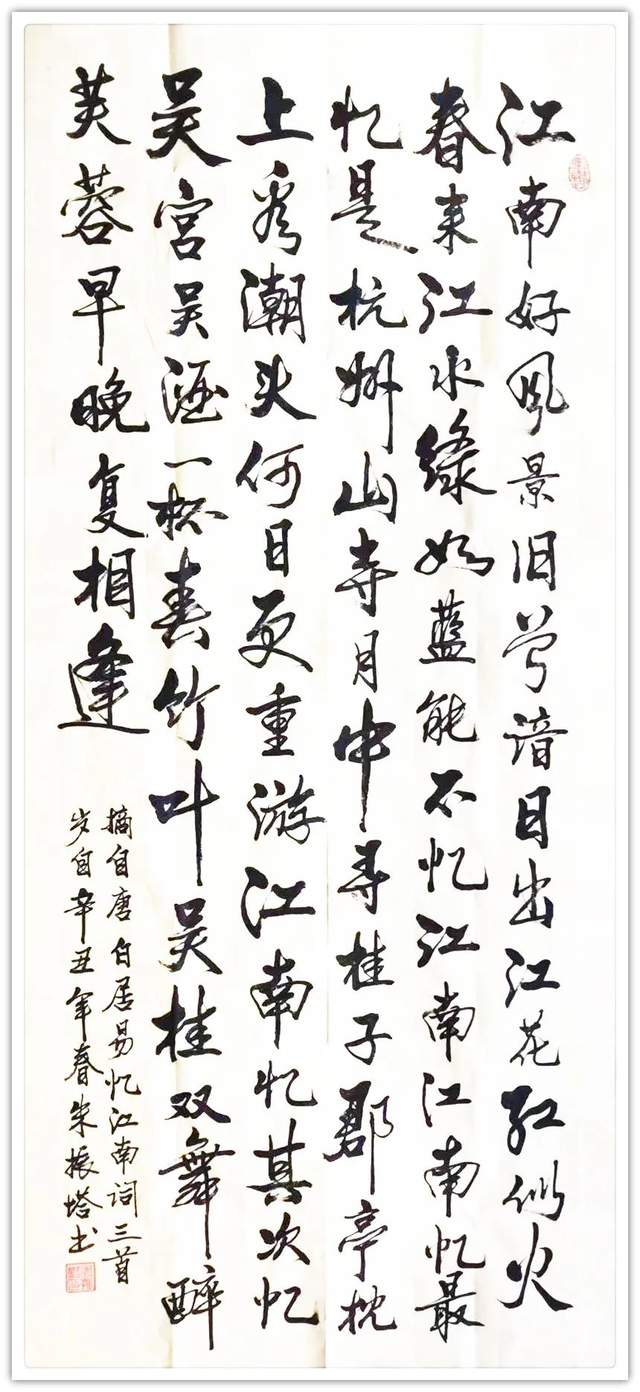 江南好风景旧曾谙日出江花红似火
春来江水绿如蓝能不忆江南江南忆最
忆是杭州山寺月中寻桂子郡亭枕
上看潮头何日更重游江南忆其次忆
吴宫吴酒一杯春竹叶吴桂双舞醉
芙蓉早晚复相逢
摘自唐白居易忆江南词三首
岁自辛丑年春朱振塔书